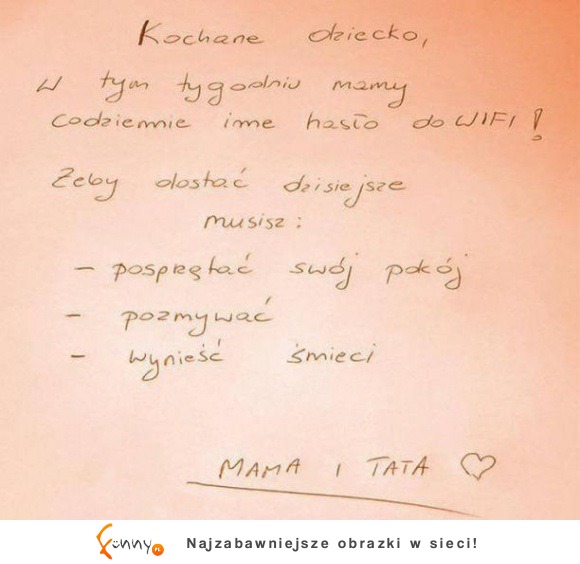 Kochane dziecko,
W tym tygodniu mamy
codziennie inne hasło do WIFI!
Żeby dostać dzisiejsze
musisz:
- posprzątać swój pokój
- pozmywać
- wynieść śmieci
MAMA I TATA ♡
funny.PL Najzabawniejsze obrazki w sieci!